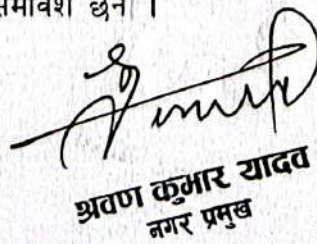 समावेश छन ।
श्रवण कुमार यादव
नगर प्रमुख